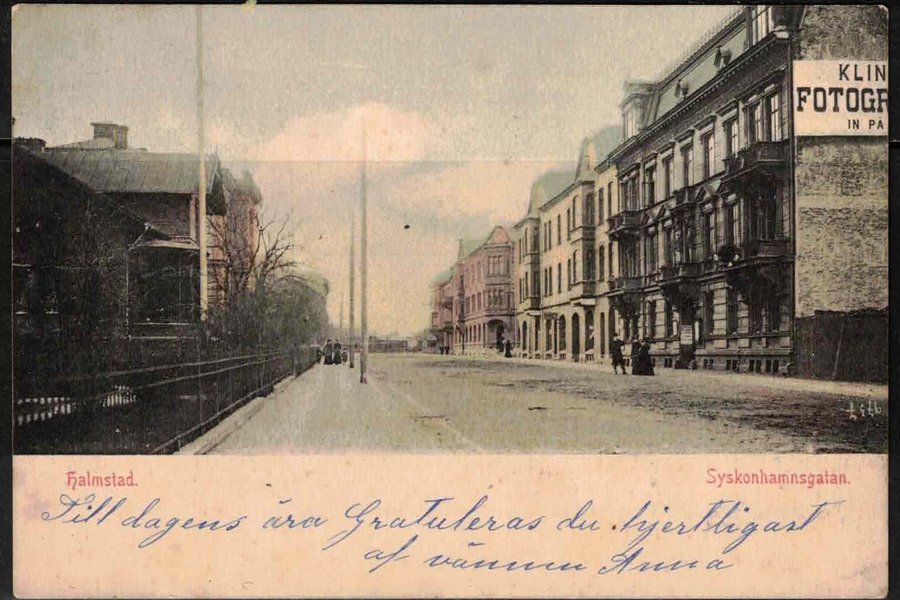 KLIN
FOTOGR
IN PÅ
Halmstad.
Syskonhamnsgatan.
Till dagens ära Gratuleras du hjertligast
af vännen Anna